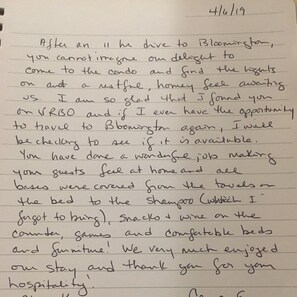 4/6/19
After an 11 hr drive to Bloomington,
you cannot imagine our delight to
come to the condo and find the lights
on and a restful, homey feel awaiting
us. I am so glad that I found you
on VRBO and if I ever have the opportunity
to travel to Bloomington again, I will
be checking to see if it is available.
You have done a wonderful job making
your guests feel at home and all
bases were covered from the towels on
the bed to the shampoo (which I
forgot to bring), snacks & wine on the
counter, games and comfortable beds
and furniture! We very much enjoyed
our stay and thank you for your
hospitality!